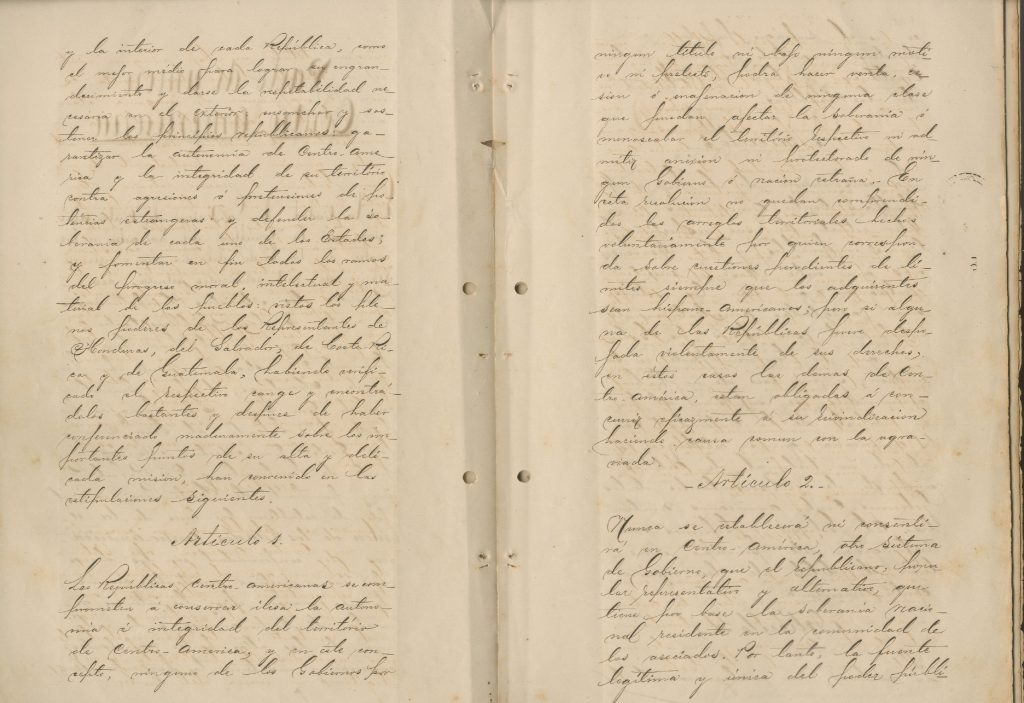 y la interior de cada República, como
el mejor medio para lograr su engran-
decimiento y darse la respetabilidad ne-
cesaria en el exterior ensanchar y sos-
tener los principios republicanos: ga-
rantizar la autonomia de Centro-Ame-
rica y la integridad de su territorio
contra agresiones ó pretensiones de po-
tencias estrangeras: y defender la so-
berania de cada uno de los Estados;
y fomentar en fin todos los ramos
del progreso moral, intelectual y ma-
terial de los pueblos: vistos los ple-
nos poderes de los Representantes de
Honduras, del Salvador, de Costa Ri-
ca y de Guatemala, habiendo verifi-
cado el respectivo cange y encontrá-
dolos bastantes y despues de haber
conferenciado maduramente sobre los im-
portantes puntos de su alta y deli-
cada mision, han convenido en las
estipulaciones siguientes.
Artículo 1.
Las Repúblicas Centro-americanas se com-
prometen á conservar ilesa la autono-
mia é integridad del territorio
de Centro-America, y en este con-
cepto, ninguno de los Gobiernos por
ningun título ni bajo ningun moti-
vo ni pretesto, podrá hacer venta, ce-
sion ó enajenacion de ninguna clase
que puedan afectar la soberanía ó
menoscabar el territorio respectivo ni ad
mitir anixion ni protectorado de nin-
gun Gobierno ó nacion estraña. En
esta resolucion no quedan comprendi-
dos los arreglos territoriales hechos
voluntariamente por quien correspon-
da sobre cuestiones pendientes de lí-
mites siempre que los adquirientes
sean hispano-americanos; pero si algu-
na de las Repúblicas fuere despo-
jada violentamente de sus derechos,
en estos casos las demas de Cen-
tro-américa, estan obligadas á con-
currir eficazmente á su reivindicacion
haciendo causa comun con la agra-
viada.
Artículo 2.
Nunca se establecerá ni consenti-
rá en Centro-América, otro sistema
de Gobierno, que el republicano, popu
lar representativo y alternativo, que
tiene por base la soberania nacio-
nal residente en la comunidad de
los asociados. Por tanto, la fuente
legítima y única del poder públi